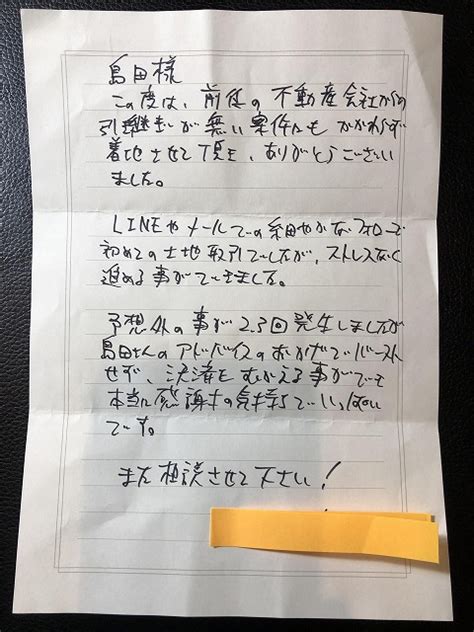 島田様
この度は、前任の不動産会社からの
引継ぎが無い案件にもかかわらず
着地させて頂き、ありがとうござい
ました。
LINEやメールでの細やかなフォローで
初めての土地取引でしたが、ストレスなく
進める事ができました。
予想外の事が2.3回発生しましたが
島田さんのアドバイスのおかげでバースト
せず、決済をむかえる事ができ
本当に感謝の気持ちでいっぱい
です。
また相談させて下さい!